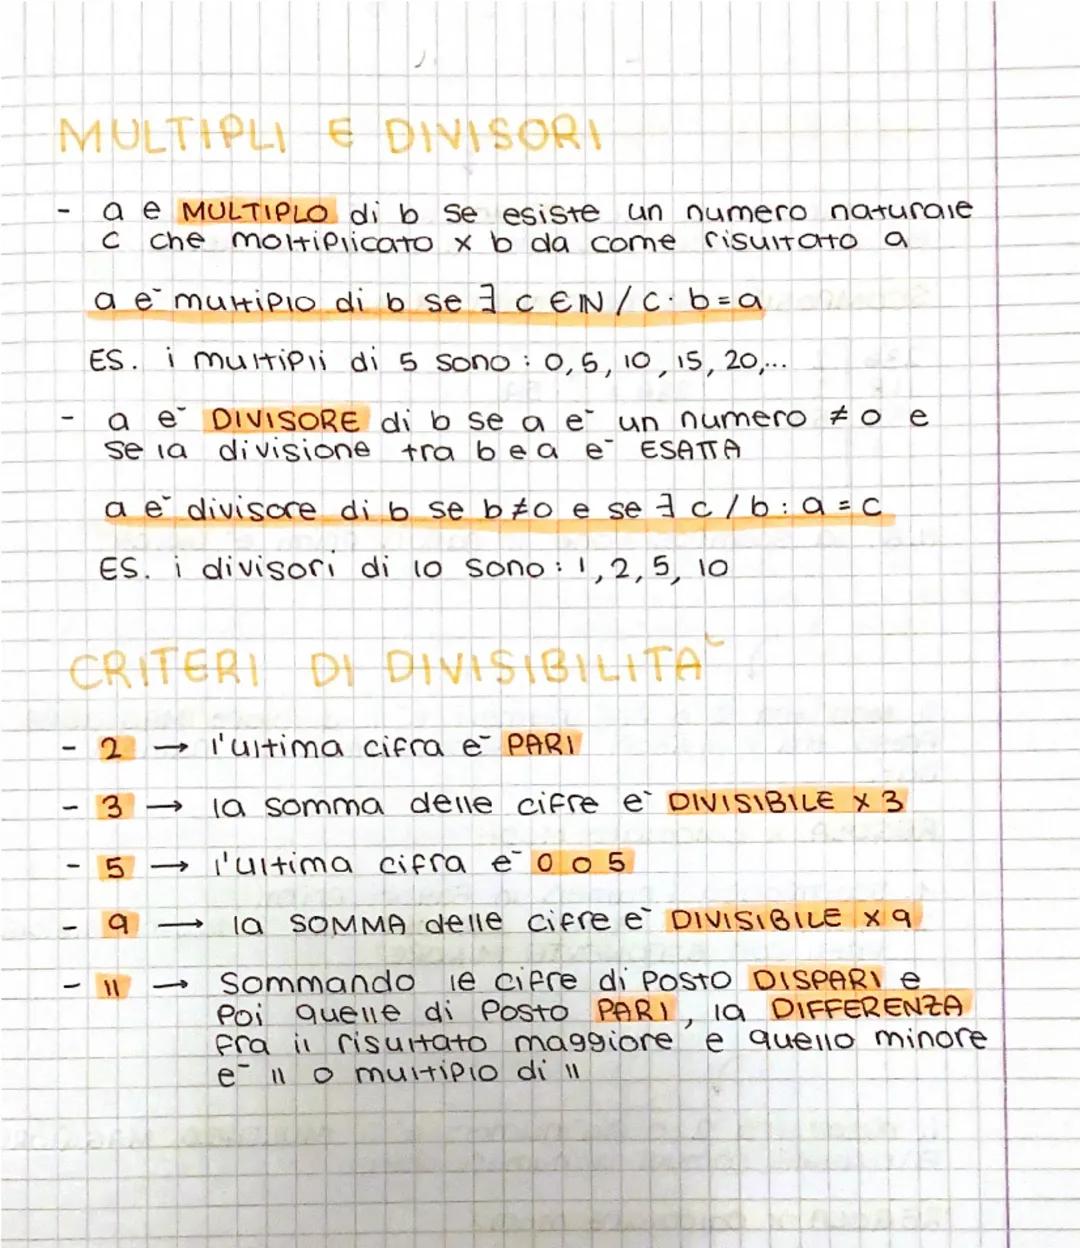 MULTIPLI E DIVISORI
- a e MULTIPLO di b se esiste un numero naturale
c che moltiplicato x b da come risultato a
a è multiplo di b se ∃ c ∈ ℕ / c · b = a
ES. i multipli di 5 sono : 0, 5, 10, 15, 20,...
- a è DIVISORE di b se a è un numero ≠ 0 e
se la divisione tra b e a è ESATTA
a è divisore di b se b ≠ 0 e se ∃ c / b : a = c
ES. i divisori di 10 sono : 1, 2, 5, 10
CRITERI DI DIVISIBILITÀ
- 2 → l'ultima cifra è PARI
- 3 → la somma delle cifre è DIVISIBILE x 3
- 5 → l'ultima cifra è 0 o 5
- 9 → la SOMMA delle cifre è DIVISIBILE x 9
- 11 → Sommando le cifre di posto DISPARI e
poi quelle di posto PARI, la DIFFERENZA
fra il risultato maggiore e quello minore
è 11 o multiplo di 11